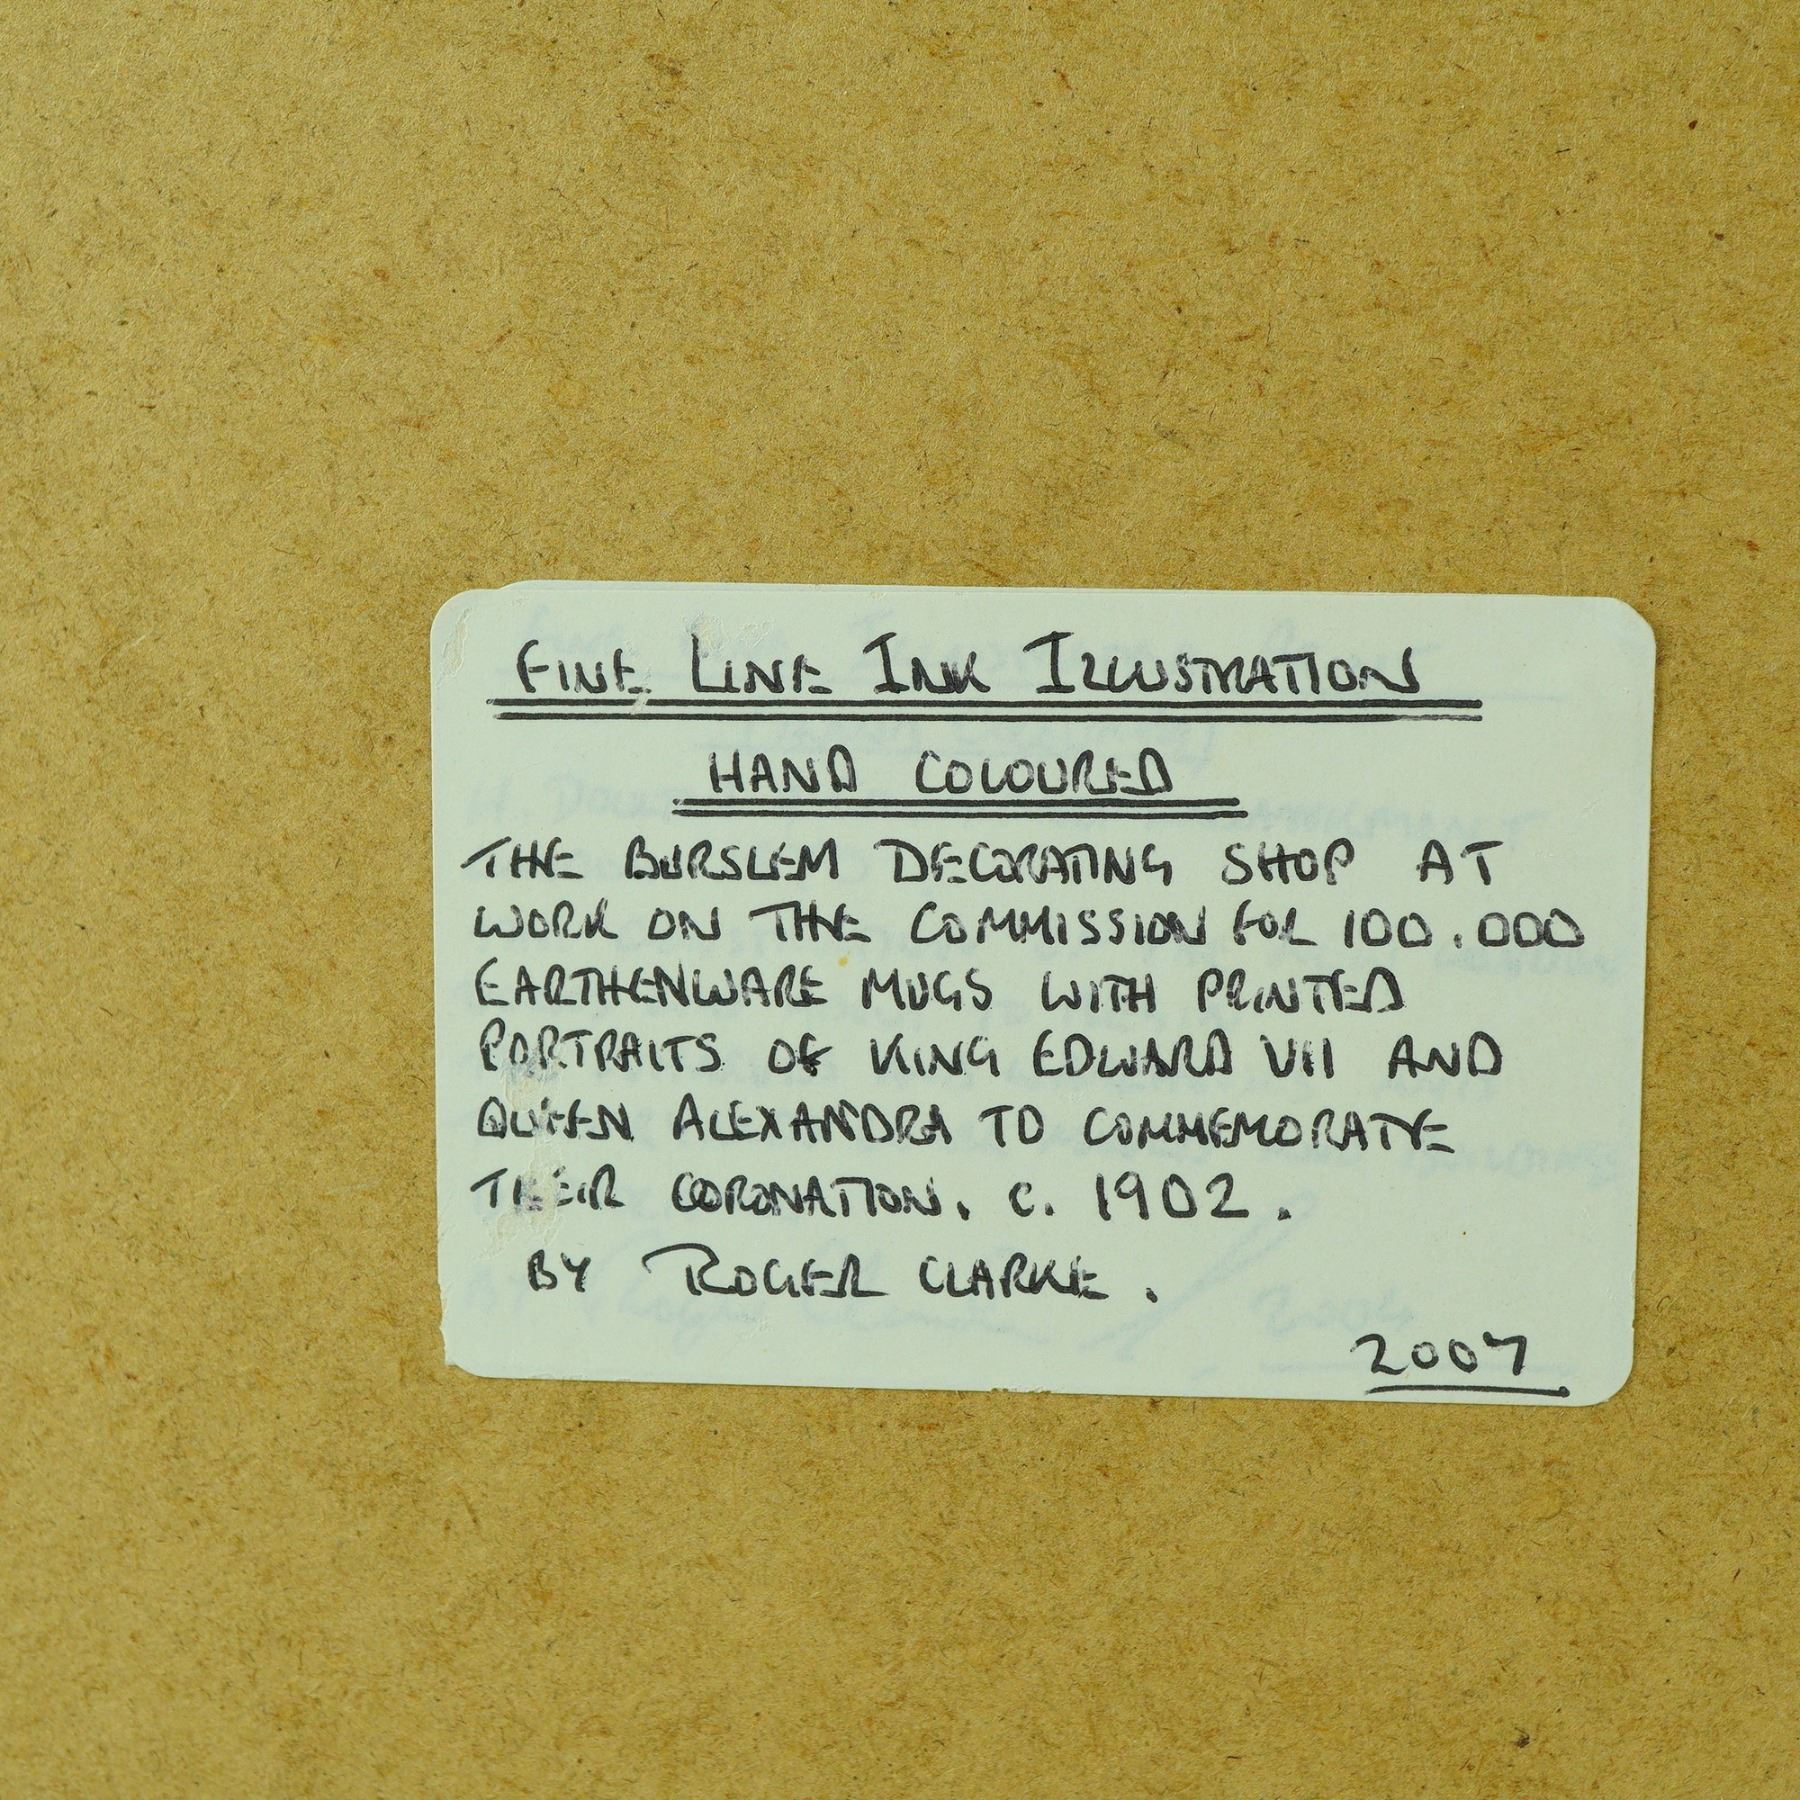 FINE LINE INK ILLUSTRATION
HAND COLOURED
THE BURSLEM DECORATING SHOP AT
WORK ON THE COMMISSION FOR 100.000
EARTHENWARE MUGS WITH PRINTED
PORTRAITS OF KING EDWARD VII AND
QUEEN ALEXANDRA TO COMMEMORATE
THEIR CORONATION. C. 1902.
BY ROGER CLARKE.
2007